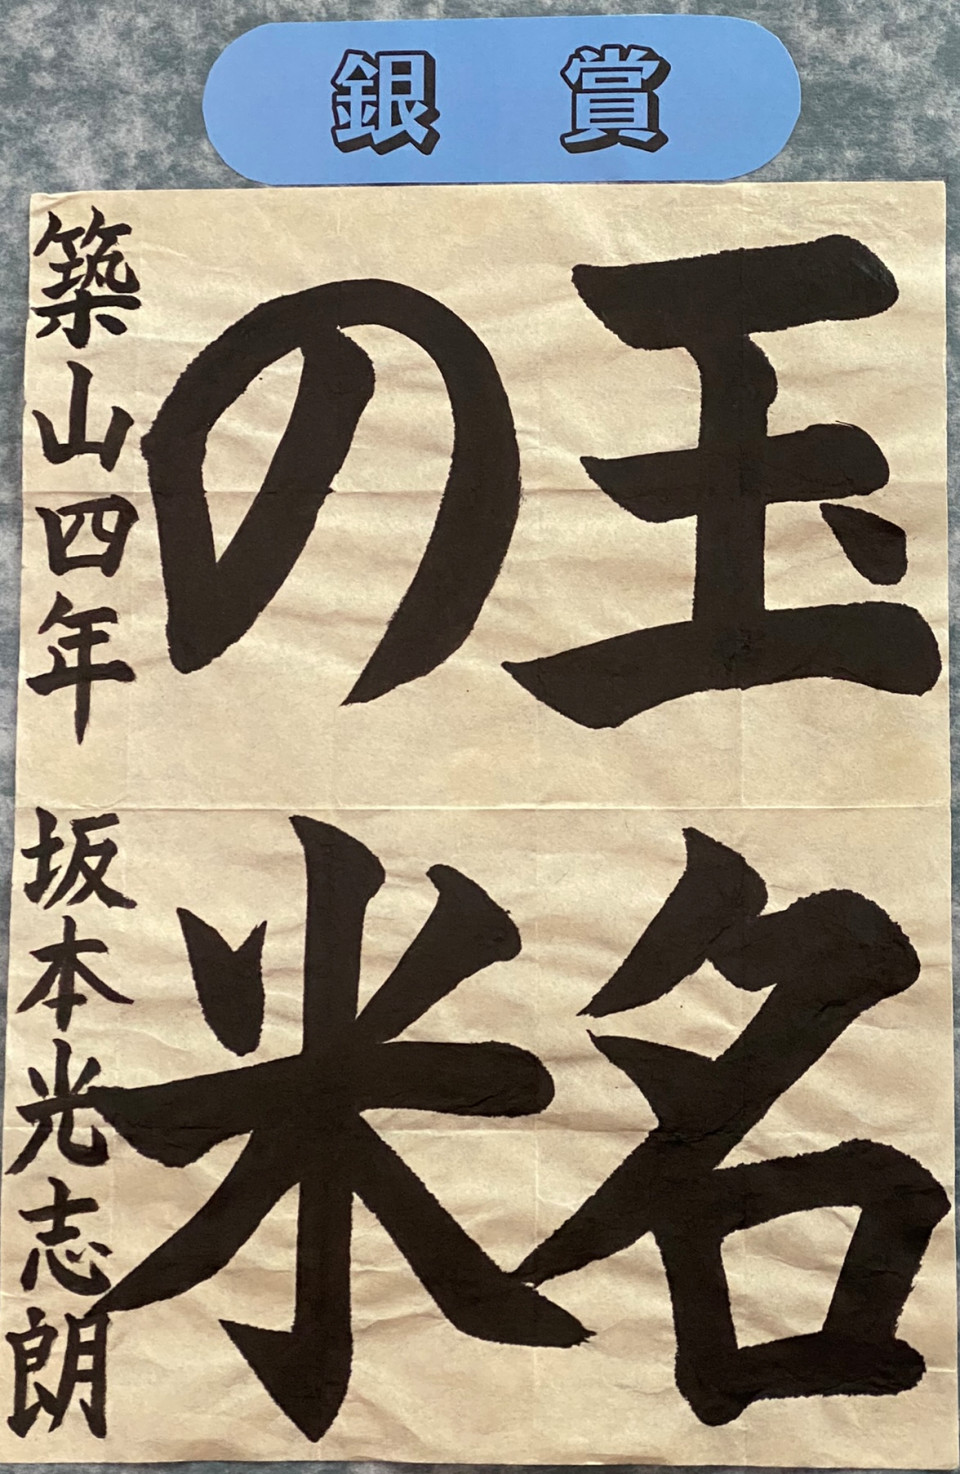 銀賞
玉名
の米
築山四年 坂本光志朗